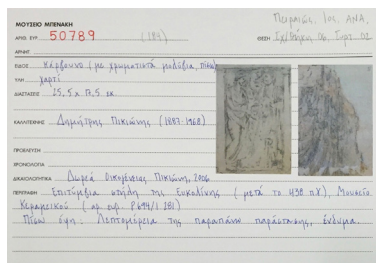 ΜΟΥΣΕΙΟ ΜΠΕΝΑΚΗ
Πειραιώς, 1ος, ΑΝΑ,
ΑΡΙΘ. ΕΥΡ. 50789 (184) ΘΕΣΗ Σχ/θήκη 06, Συρτ. 02
ΑΡΝΗΤ.
ΕΙΔΟΣ Κάρβουνο (με χρωματιστά μολύβια, πίσω)
ΥΛΗ χαρτί
ΔΙΑΣΤΑΣΕΙΣ 25,5 x 17,5 εκ.
ΚΑΛΛΙΤΕΧΝΗΣ Δημήτρης Πικιώνης (1887-1968)
ΠΡΟΕΛΕΥΣΗ
ΧΡΟΝΟΛΟΓΙΑ
ΔΙΚΑΙΟΛΟΓΗΤΙΚΑ Δωρεά Οικογένειας Πικιώνη, 2006
ΠΕΡΙΓΡΑΦΗ Επιτύμβια στήλη της Ευκολίνης (μετά το 438 π.Χ), Μουσείο
Κεραμεικού (αρ. ευρ. P694/I 281)
Πίσω όψη: Λεπτομέρεια της παραπάνω παράστασης, ένδυμα.